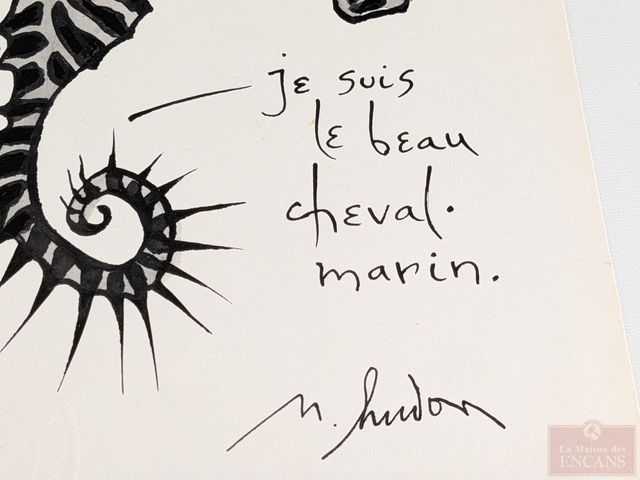 je suis
le beau
cheval.
marin.
n. hudon
La Maison des
ENCANS